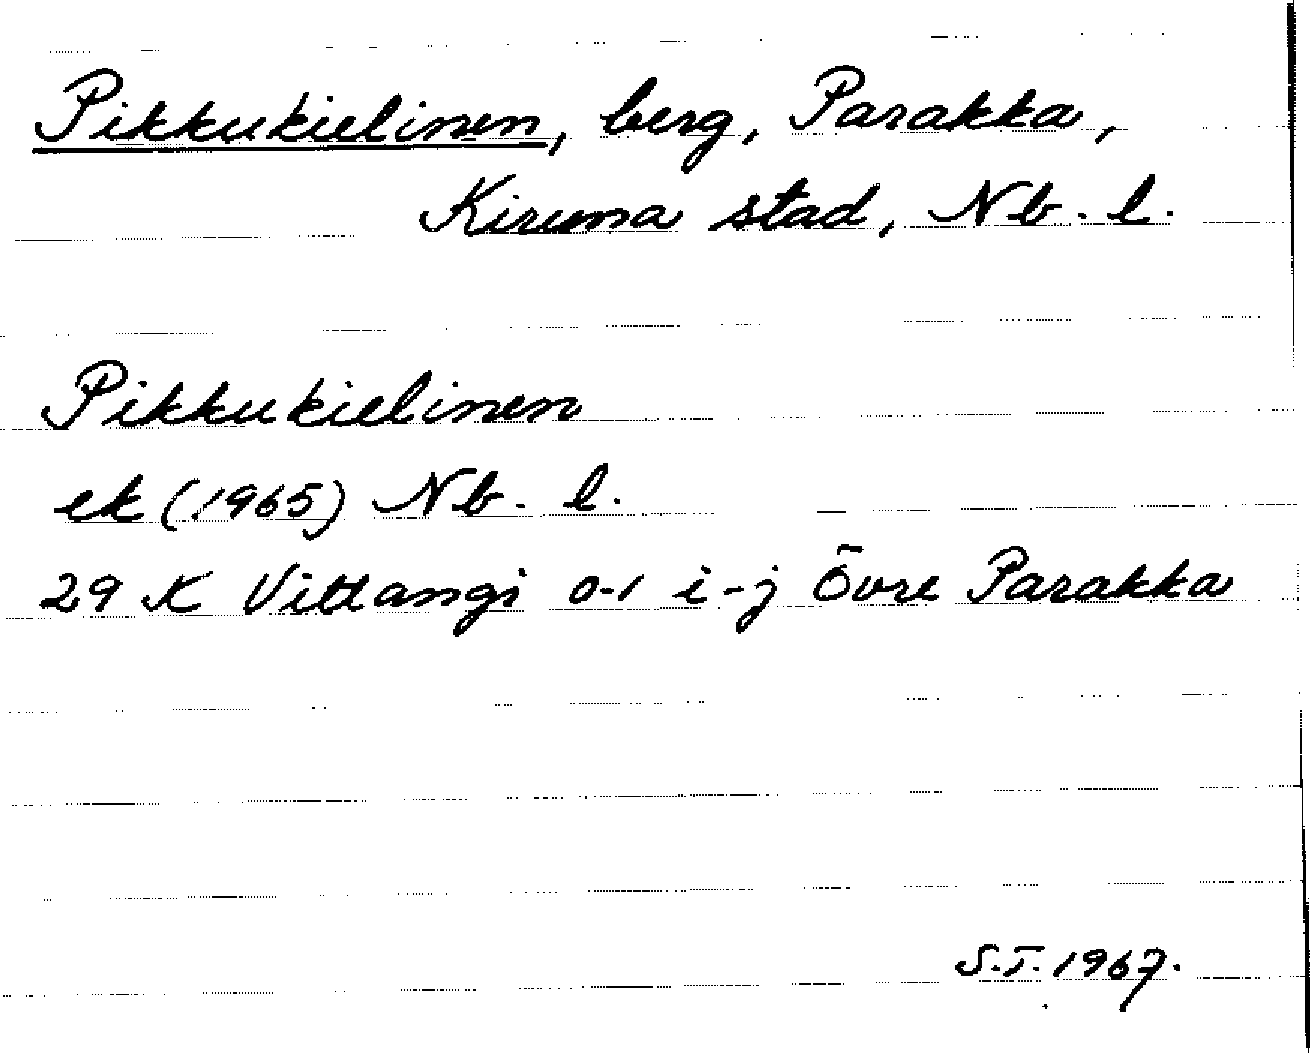 Pikkukielinen, berg, Parakka,
Kiruna stad, Nb. l.
Pikkukielinen
ek (1965) Nb. l.
29 K Vittangi 0-1 i-j Övre Parakka
S.T. 1967.